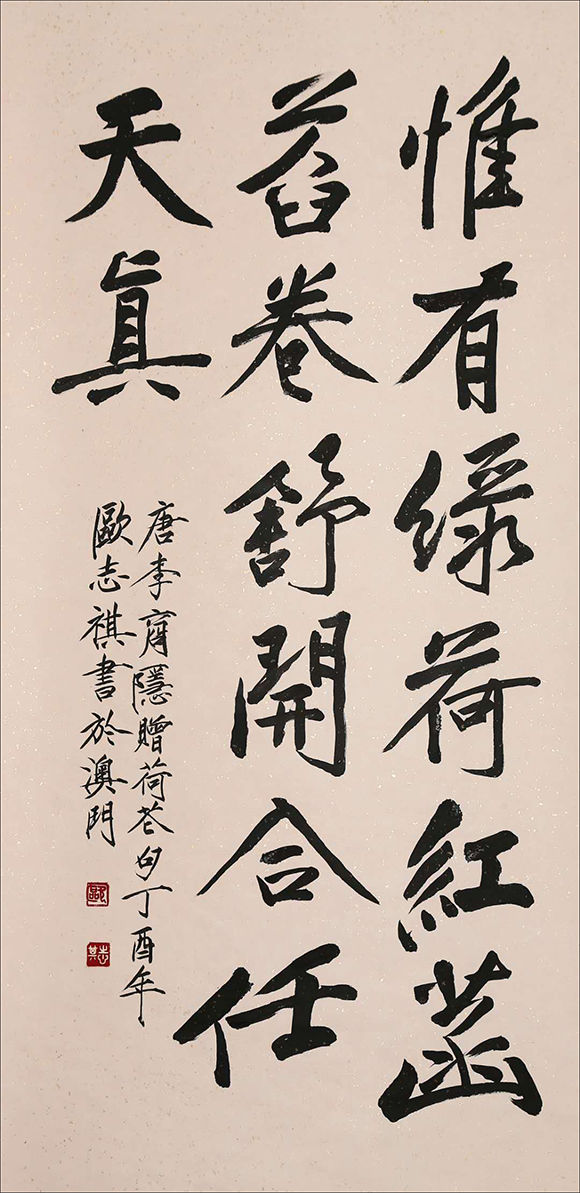 惟有緑荷紅菡
萏卷舒開合任
天眞
唐李商隱贈荷花句丁酉年
歐志祺書於澳門
歐
志其